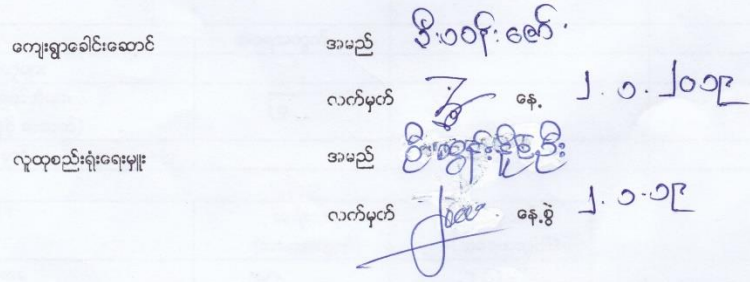 ကျေးရွာခေါင်းဆောင် အမည် ဦးဝင်းဇော်
လက်မှတ် နေ့ ၂.၁.၂၀၁၉
လူထုစည်းရုံးရေးမှူး အမည် ဦးထွန်းနိုင်ဦး
လက်မှတ် နေ့စွဲ ၂.၁.၁၉